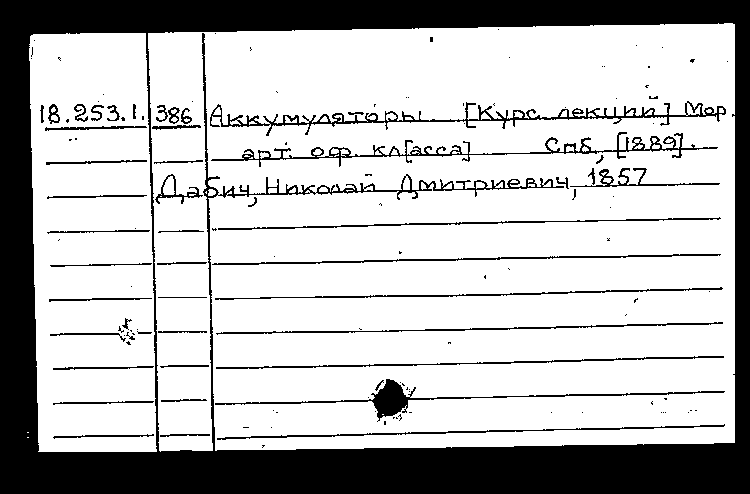 18.253.1. 386 Аккумуляторы. [Курс лекций] Мор.
арт. оф. кл[асса] Спб, [1889].
Дабич, Николай Дмитриевич, 1857